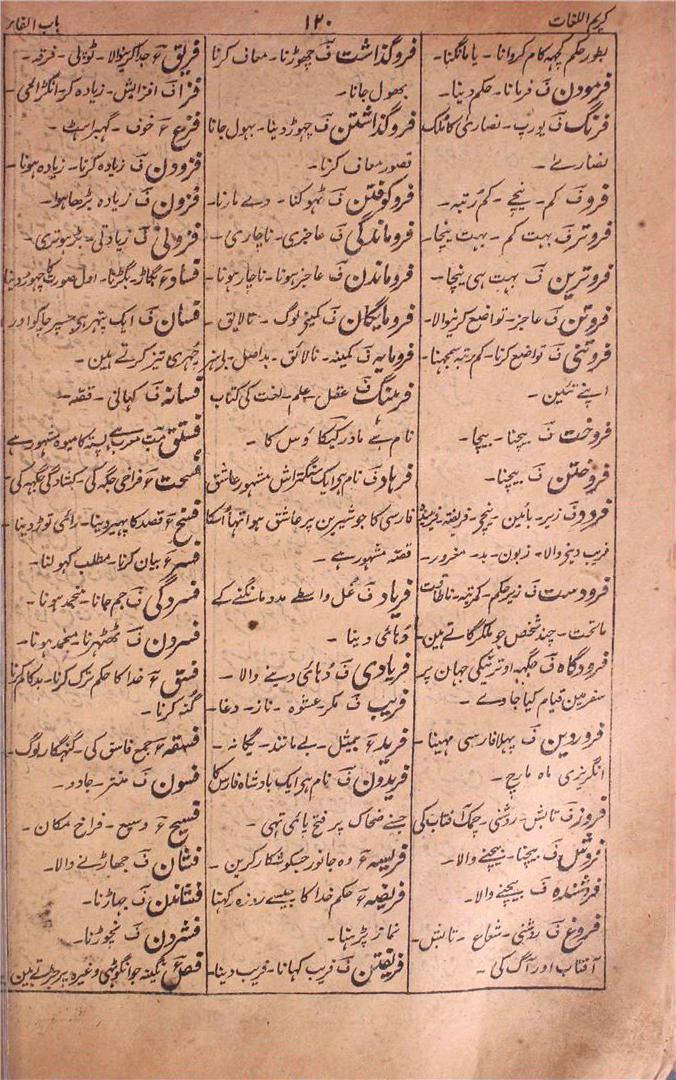 کریم اللغات
۱۲۰
باب الفاء
بطور حکم کچہہ کام کروانا - یا مانگنا -
فرمودن ف فرمانا - حکم دینا -
فرنگ ف یورپ - نصاریٰ کا ملک
نصارے -
فرو ف کم - نیچے - کم رتبہ -
فروتر ف بہت کم - بہت نیچا -
فروترین ف بہت ہی نیچا -
فروتن ف عاجز - تواضع کرنیوالا -
فروتنی ف تواضع کرنا - کم رتبہ سمجہنا
اپنے تئین -
فروخت ف بیچنا - بیچا -
فروختن ف بیچنا -
فرود ف زیر - پائین - نیچے - فریفتہ
فریب دینے والا - زبون - بد - مغرور -
فرودست ف زیر حکم - کم رتبہ - ناطاقت
ماتحت - چند شخص جو ملکر گاتے ہین -
فرودگاہ ف جگہہ اوترنیکی جہان پر
سفر مین قیام کیا جاوے -
فروردین ف پہلا فارسی مہینا -
انگریزی ماہ مارچ -
فروز ف تابش - روشنی - چمک آفتاب کی
فروش ف بیچنا - بیچنے والا -
فروشندہ ف بیچنے والا -
فروغ ف روشنی - شعاع - تابش -
آفتاب اور آگ کی -
فروگذاشت ف چھوڑنا - معاف کرنا
بھول جانا -
فروگذاشتن ف چہوڑ دینا - بہول جانا
قصور معاف کرنا -
فروکوفتن ف ٹھوکنا - دے مارنا -
فروماندگی ف عاجزی - ناچاری -
فروماندن ف عاجز ہونا - ناچار ہونا -
فرومایگان ف کمینے لوگ - نالایق -
فرومایہ ف کمینہ - نالائق - بداصل -
فرہنگ ف عقل - علم - لغت کی کتاب
نام ہے مادر کیکا وس کا -
فرہاد ف نام ہو ایک سنگتراش مشہور عاشق
فارسی کا جو شیرین پر عاشق ہوا تہا اسکا
قصہ مشہور ہے -
فریاد ف غل واسطے مدد مانگنے کے
دُہائی دینا -
فریادی ف دُہائی دینے والا -
فریب ف مکر - عشوہ - ناز - دغا -
فرید ع بیمثل - بے مانند - یگانہ -
فریدون ف نام ہو ایک بادشاہ فارس کا
جسنے ضحاک پر فتح پائی تہی -
فریسہ ع وہ جانور جسکو شکار کرین -
فریضہ ع حکم خدا کا جیسے روزہ رکہنا
نماز پڑہنا -
فریفتن ف فریب کہانا - فریب دینا -
فریق ع جدا کرنیوالا - ٹولی - فرقہ -
فزا ف افزایش - زیادہ کر -
فزع ع خوف - گھبراہٹ -
فزودن ف زیادہ کرنا - زیادہ ہونا -
فزون ف زیادہ بڑھا ہوا -
فزونی ف زیادتی - بڑہوتری -
فساد ع بگاڑ - بگڑنا - اصل صورت کا چہوڑ دینا
فسان ف ایک پتہر ہی جسپر چاکو اور
چُہری تیز کرتے ہین -
فسانہ ف کہانی - قصہ -
فستق معرب ہے پستہ کا میوہ مشہور ہے
فسحت ع فراخی جگہ کی - کشادگی جگہہ کی -
فسخ ع قصد کا پہیر دینا - رائی توڑ دینا -
فسر ع بیان کرنا - مطلب کہولنا -
فسردگی ف جم جانا - منجمد ہونا -
فسردن ف ٹھٹھرنا - منجمد ہونا -
فسق ع خدا کا حکم ترک کرنا - بد کام کرنا
گنہ کرنا -
فسقہ ع جمع فاسق کی - گنہگار لوگ -
فسون ف منتر - جادو -
فسیح ع وسیع - فراخ مکان -
فشان ف جھاڑنے والا -
فشاندن ف جہاڑنا -
فشردن ف نچوڑنا -
فص ع نگینہ جو انگوٹھی وغیرہ پر جڑتے ہین